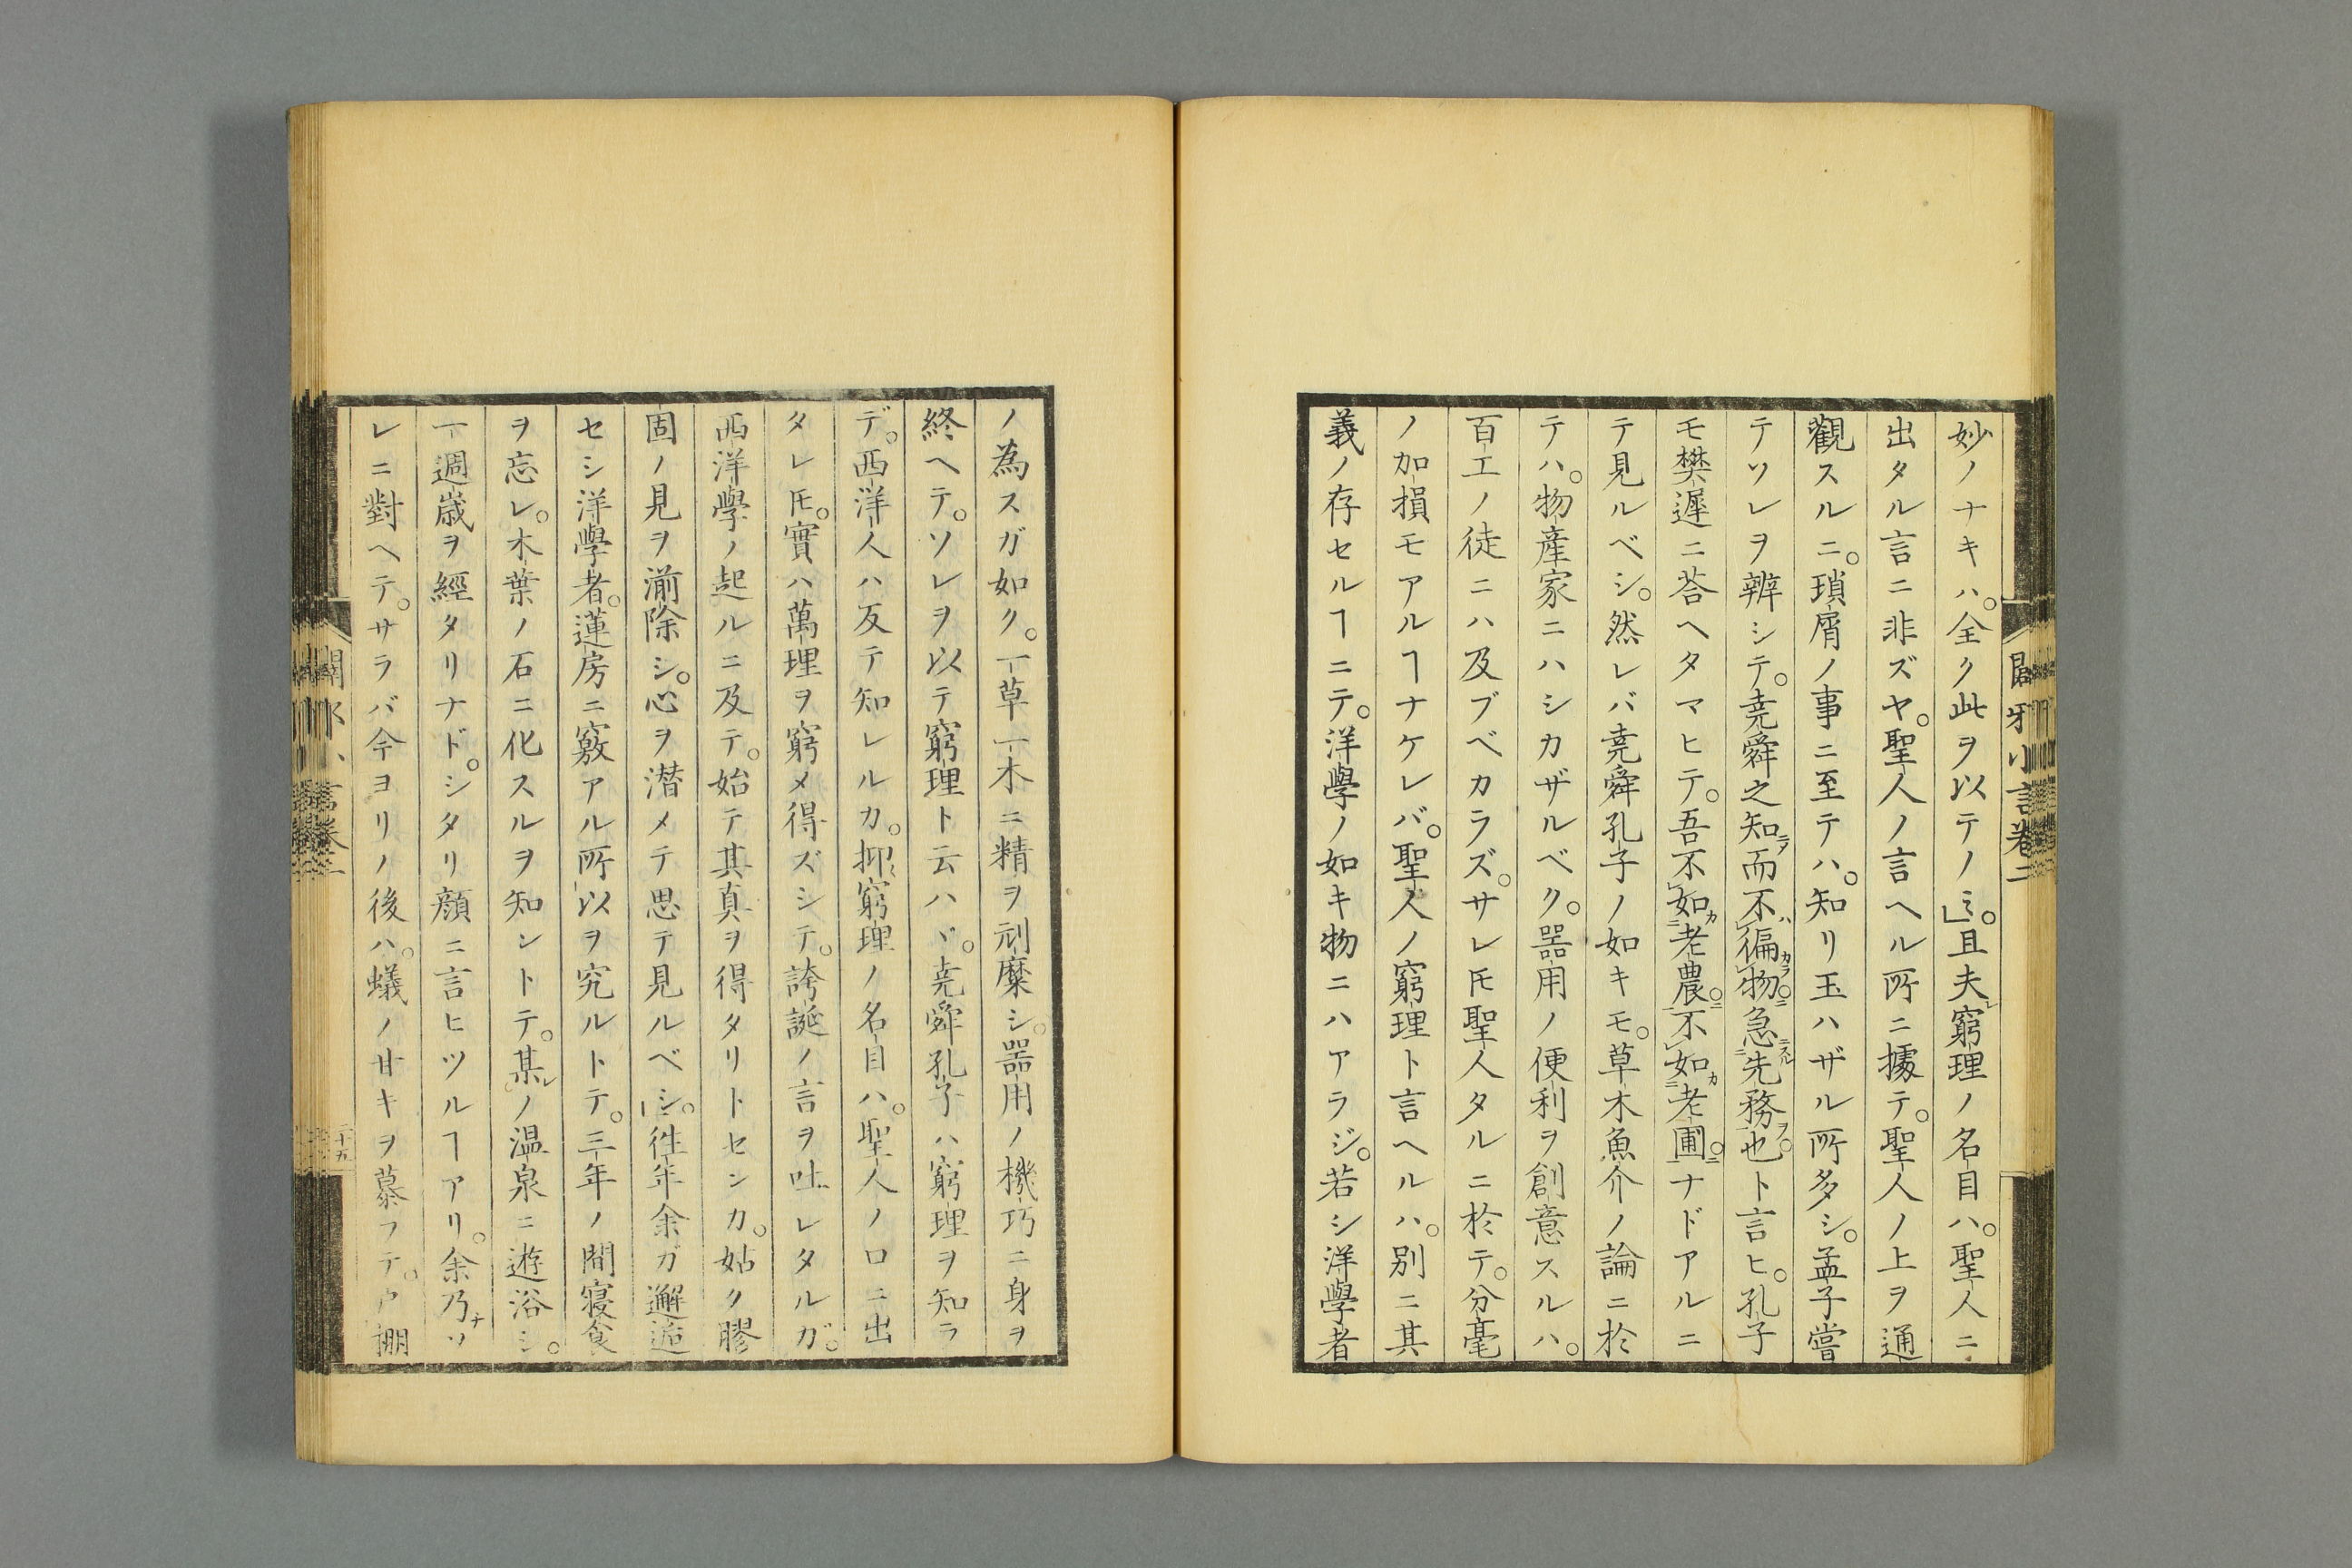 妙ノナキハ。全ク此ヲ以テノミ。」且夫レ窮理ノ名目ハ。聖人ニ
出タル言ニ非ズヤ。聖人ノ言ヘル所ニ據テ。聖人ノ上ヲ通
觀スルニ。瑣屑ノ事ニ至テハ。知リ玉ハザル所多シ。孟子嘗
テソレヲ辨シテ。堯舜之知而不徧物。急先務也ト言ヒ。孔子
モ樊遲ニ荅ヘタマヒテ。吾不如老農。不如老圃。ナドアルニ
テ見ルベシ。然レバ堯舜孔子ノ如キモ。草木魚介ノ論ニ於
テハ。物産家ニハシカザルベク。噐用ノ便利ヲ創意スルハ。
百工ノ徒ニハ及ブベカラズ。サレ𪜈聖人タルニ於テ。分毫
ノ加損モアルヿナケレバ。聖人ノ窮理ト言ヘルハ。別ニ其
義ノ存セルヿニテ。洋學ノ如キ物ニハアラジ。若シ洋學者
ノ為スガ如ク。一草一木ニ精ヲ刓糜シ。噐用ノ機巧ニ身ヲ
終ヘテ。ソレヲ以テ窮理ト云ハヾ。堯舜孔子ハ窮理ヲ知ラ
デ。西洋人ハ反テ知レルカ。抑窮理ノ名目ハ。聖人ノ口ニ出
タレ𪜈。實ハ萬理ヲ窮メ得ズシテ。誇誕ノ言ヲ吐レタルガ。
西洋學ノ起ルニ及テ。始テ其真ヲ得タリトセンカ。姑ク膠
固ノ見ヲ湔除シ。心ヲ潜メテ思テ見ルベシ。徃年余ガ邂逅
セシ洋學者。蓮房ニ竅アル所以ヲ究ルトテ。三年ノ間寝食
ヲ忘レ。木葉ノ石ニ化スルヲ知ントテ。某レノ温泉ニ遊浴シ。
一週歳ヲ經タリナド。シタリ顔ニ言ヒツルヿアリ。余乃ナソ
レニ對ヘテ。サラバ今ヨリノ後ハ。蟻ノ甘キヲ慕フテ。戸棚
闢邪小言卷二
二十九